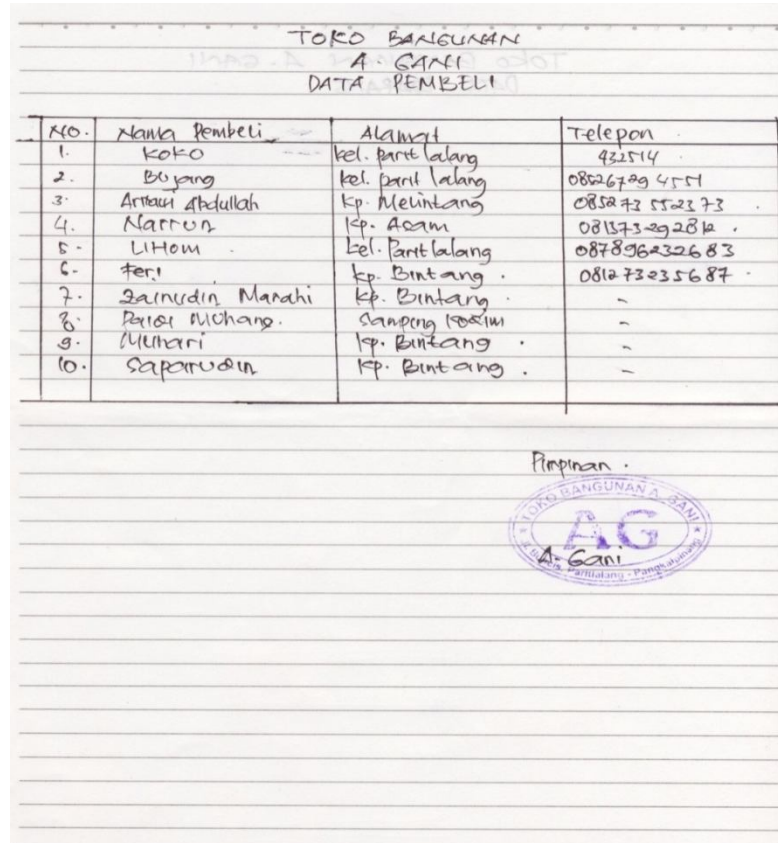 TOKO BANGUNAN
A. GANI
DATA PEMBELI
NO. Nama Pembeli Alamat Telepon
1. KOKO kel. Parit lalang 432514
2. Bujang kel. parit lalang 085267294551
3. Abdullah kp. Melintang 085273552373
4. Kp. Asam 081373292812
5. LIHOM kel. Parit lalang 087896232683
6. Feri kp. Bintang 081273235687
7. Zainudin Manahi kp. Bintang -
8. Samping -
9. Muhari kp. Bintang -
10. Saparudin kp. Bintang -
Pimpinan
TOKO BANGUNAN A. GANI
AG
A. Gani
Paritlalang - Pangkalpinang